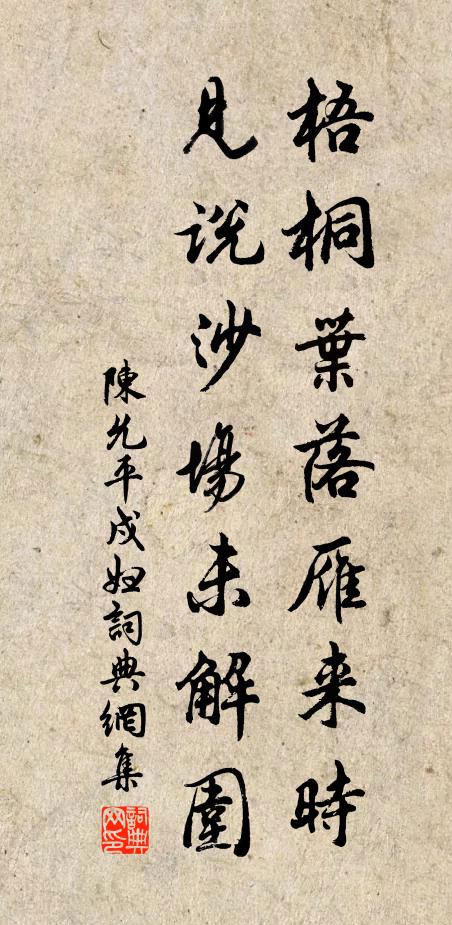 梧桐葉落雁来時
見説沙場未解圍
陳允平戍婦詞典網集
詞典网印